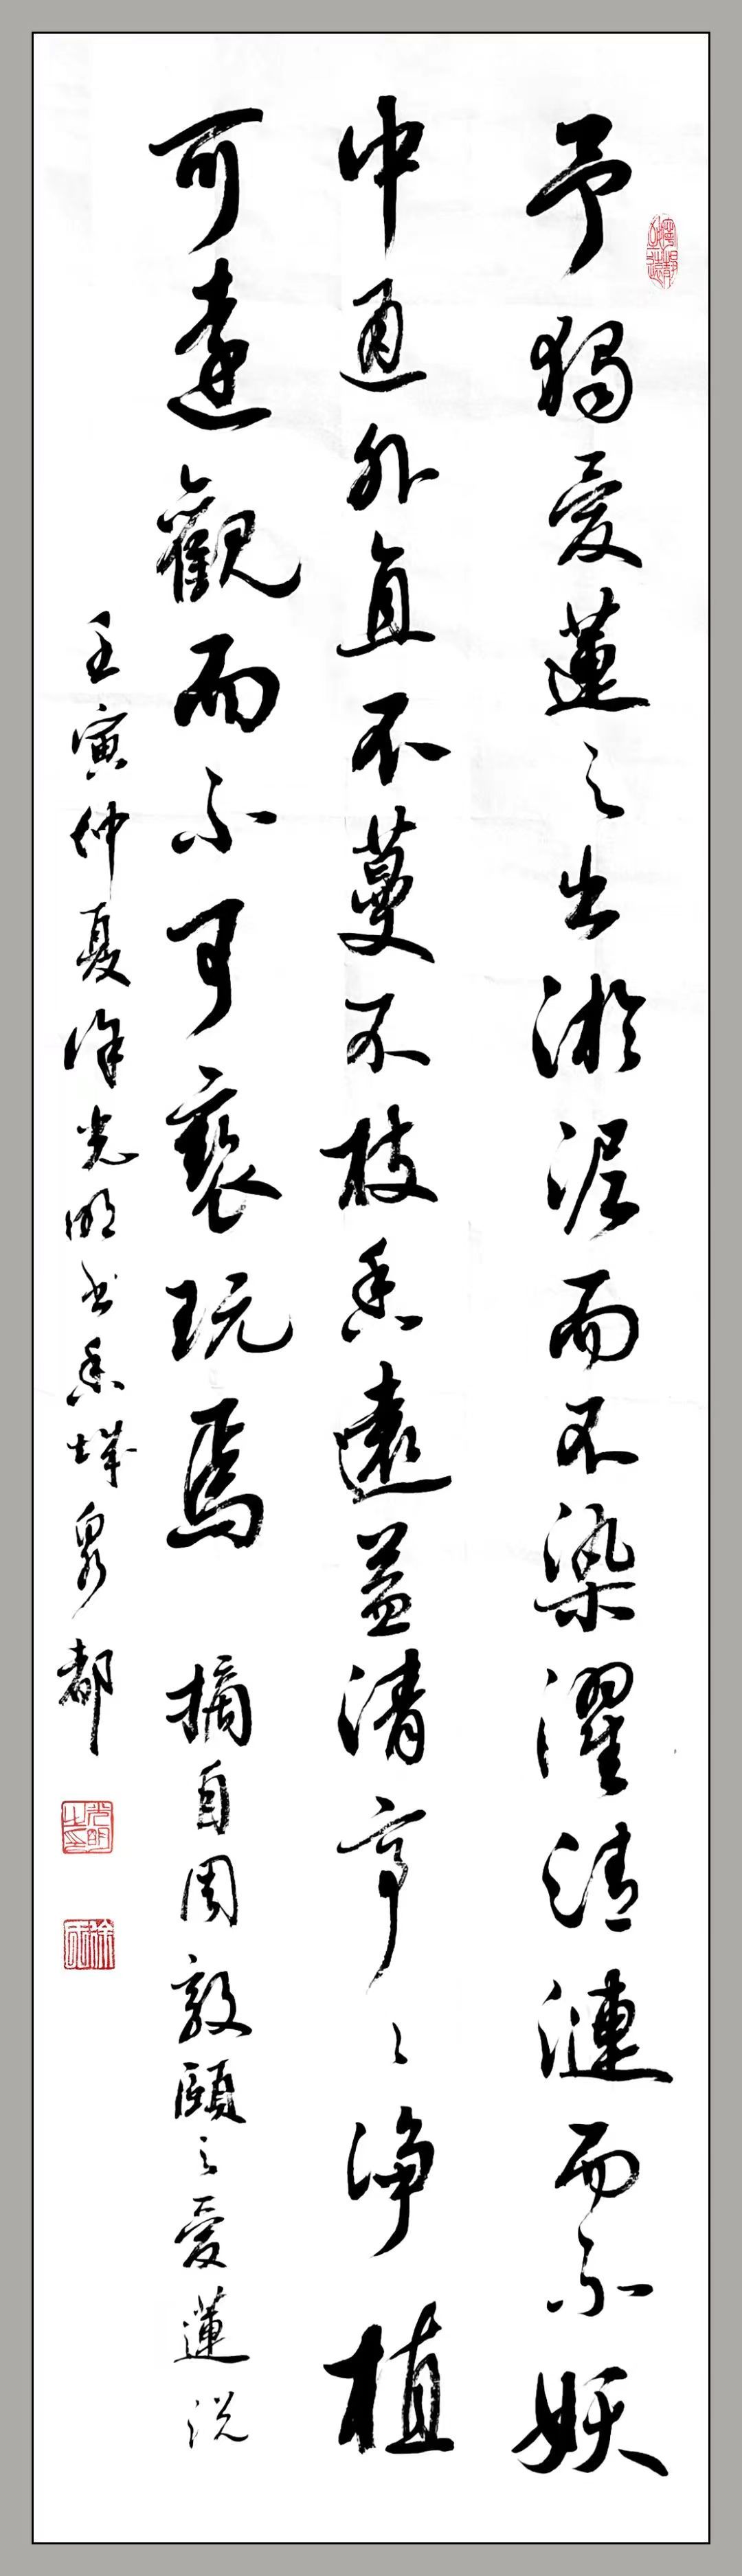 予獨愛蓮之出淤泥而不染濯清漣而不妖
中通外直不蔓不枝香遠益清亭々淨植
可遠觀而不可褻玩焉 摘自周敦頤之愛蓮説
壬寅仲夏徐光明书香城泉都
光明之印